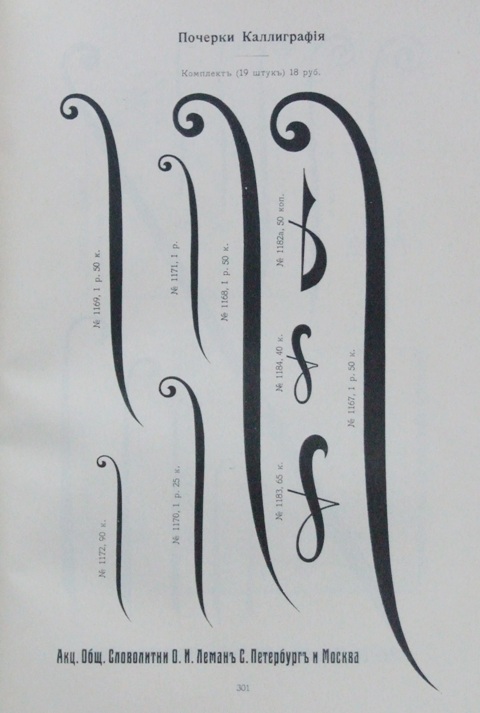 Почерки Каллиграфія
Комплектъ (19 штукъ) 18 руб.
№ 1169, 1 р. 50 к.
№ 1171, 1 р.
№ 1168, 1 р. 50 к.
№ 1182а, 50 коп.
№ 1184, 40 к.
№ 1167, 1 р. 50 к.
№ 1172, 90 к.
№ 1170, 1 р. 25 к.
№ 1183, 65 к.
Акц. Общ. Словолитни О. И. Леманъ С. Петербургъ и Москва
301